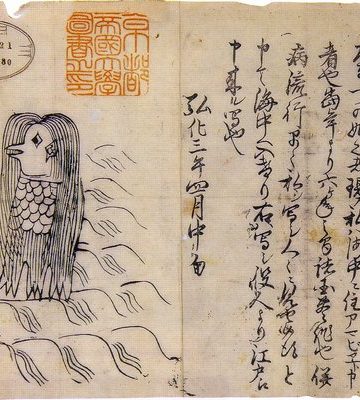 の如く者現ス私ハ海中ニ住アマビヱト申
者也當年より六ヶ年之間諸国豊作也併
病流行早々私ヲ写シ人々ニ見セ候得と
申て海中へ入けり右ハ写シ役人より江戸え
申来ル写也
弘化三年四月中旬
京都
帝國大學
圖書之印
21
80